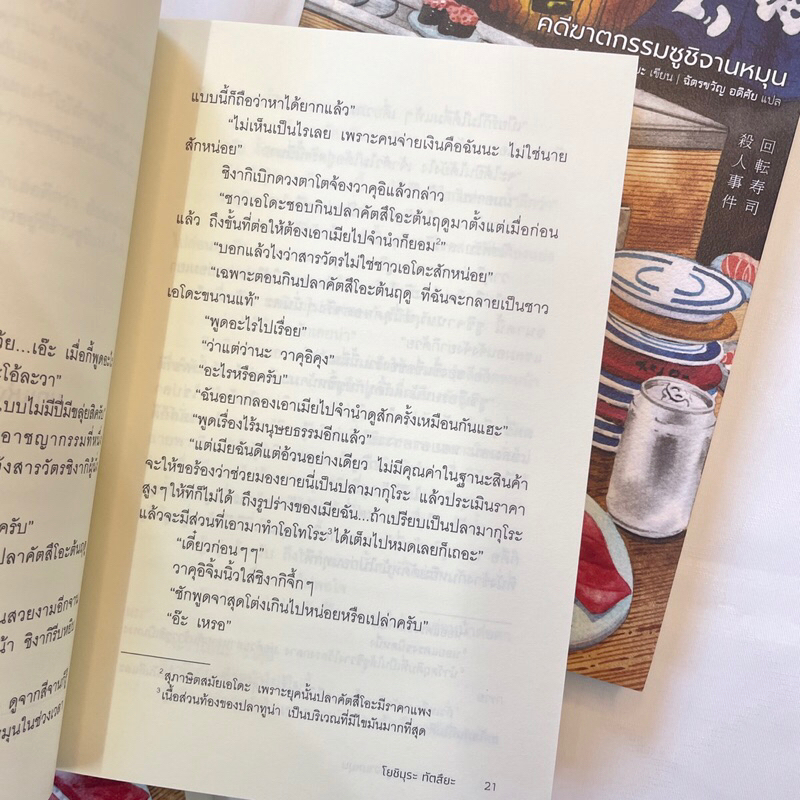 คดีฆาตกรรมซูชิจานหมุน
เขียน | ฉัตรขวัญ อดิศัย แปล
回転寿司
殺人事件
แบบนี้ก็ถือว่าหาได้ยากแล้ว”
“ไม่เห็นเป็นไรเลย เพราะคนจ่ายเงินคือฉันนะ ไม่ใช่นาย
สักหน่อย”
ชิงากิเบิกดวงตาโตจ้องวาคุอิแล้วกล่าว
“ชาวเอโดะชอบกินปลาคัตสึโอะต้นฤดูมาตั้งแต่เมื่อก่อน
แล้ว ถึงขั้นที่ต่อให้ต้องเอาเมียไปจำนำก็ยอม²”
“บอกแล้วไงว่าสารวัตรไม่ใช่ชาวเอโดะสักหน่อย”
“เฉพาะตอนกินปลาคัตสึโอะต้นฤดู ที่ฉันจะกลายเป็นชาว
เอโดะขนานแท้”
“พูดอะไรไปเรื่อย”
“ว่าแต่ว่านะ วาคุอิคุง”
“อะไรหรือครับ”
“ฉันอยากลองเอาเมียไปจำนำดูสักครั้งเหมือนกันแฮะ”
“พูดเรื่องไร้มนุษยธรรมอีกแล้ว”
“แต่เมียฉันดีแต่อ้วนอย่างเดียว ไม่มีคุณค่าในฐานะสินค้า
จะให้ขอร้องว่าช่วยมองยายนี่เป็นปลามากุโระ แล้วประเมินราคา
สูงๆ ให้ทีก็ไม่ได้ ถึงรูปร่างของเมียฉัน...ถ้าเปรียบเป็นปลามากุโระ
แล้วจะมีส่วนที่เอามาทำโอโทโระ³ได้เต็มไปหมดเลยก็เถอะ”
“เดี๋ยวก่อนๆๆ”
วาคุอิจิ้มนิ้วใส่ชิงากิจึ้กๆ
“ชักพูดจาสุดโต่งเกินไปหน่อยหรือเปล่าครับ”
“อ๊ะ เหรอ”
² สุภาษิตสมัยเอโดะ เพราะยุคนั้นปลาคัตสึโอะมีราคาแพง
³ เนื้อส่วนท้องของปลาทูน่า เป็นบริเวณที่มีไขมันมากที่สุด
โยชิมุระ ทัตสึยะ 21